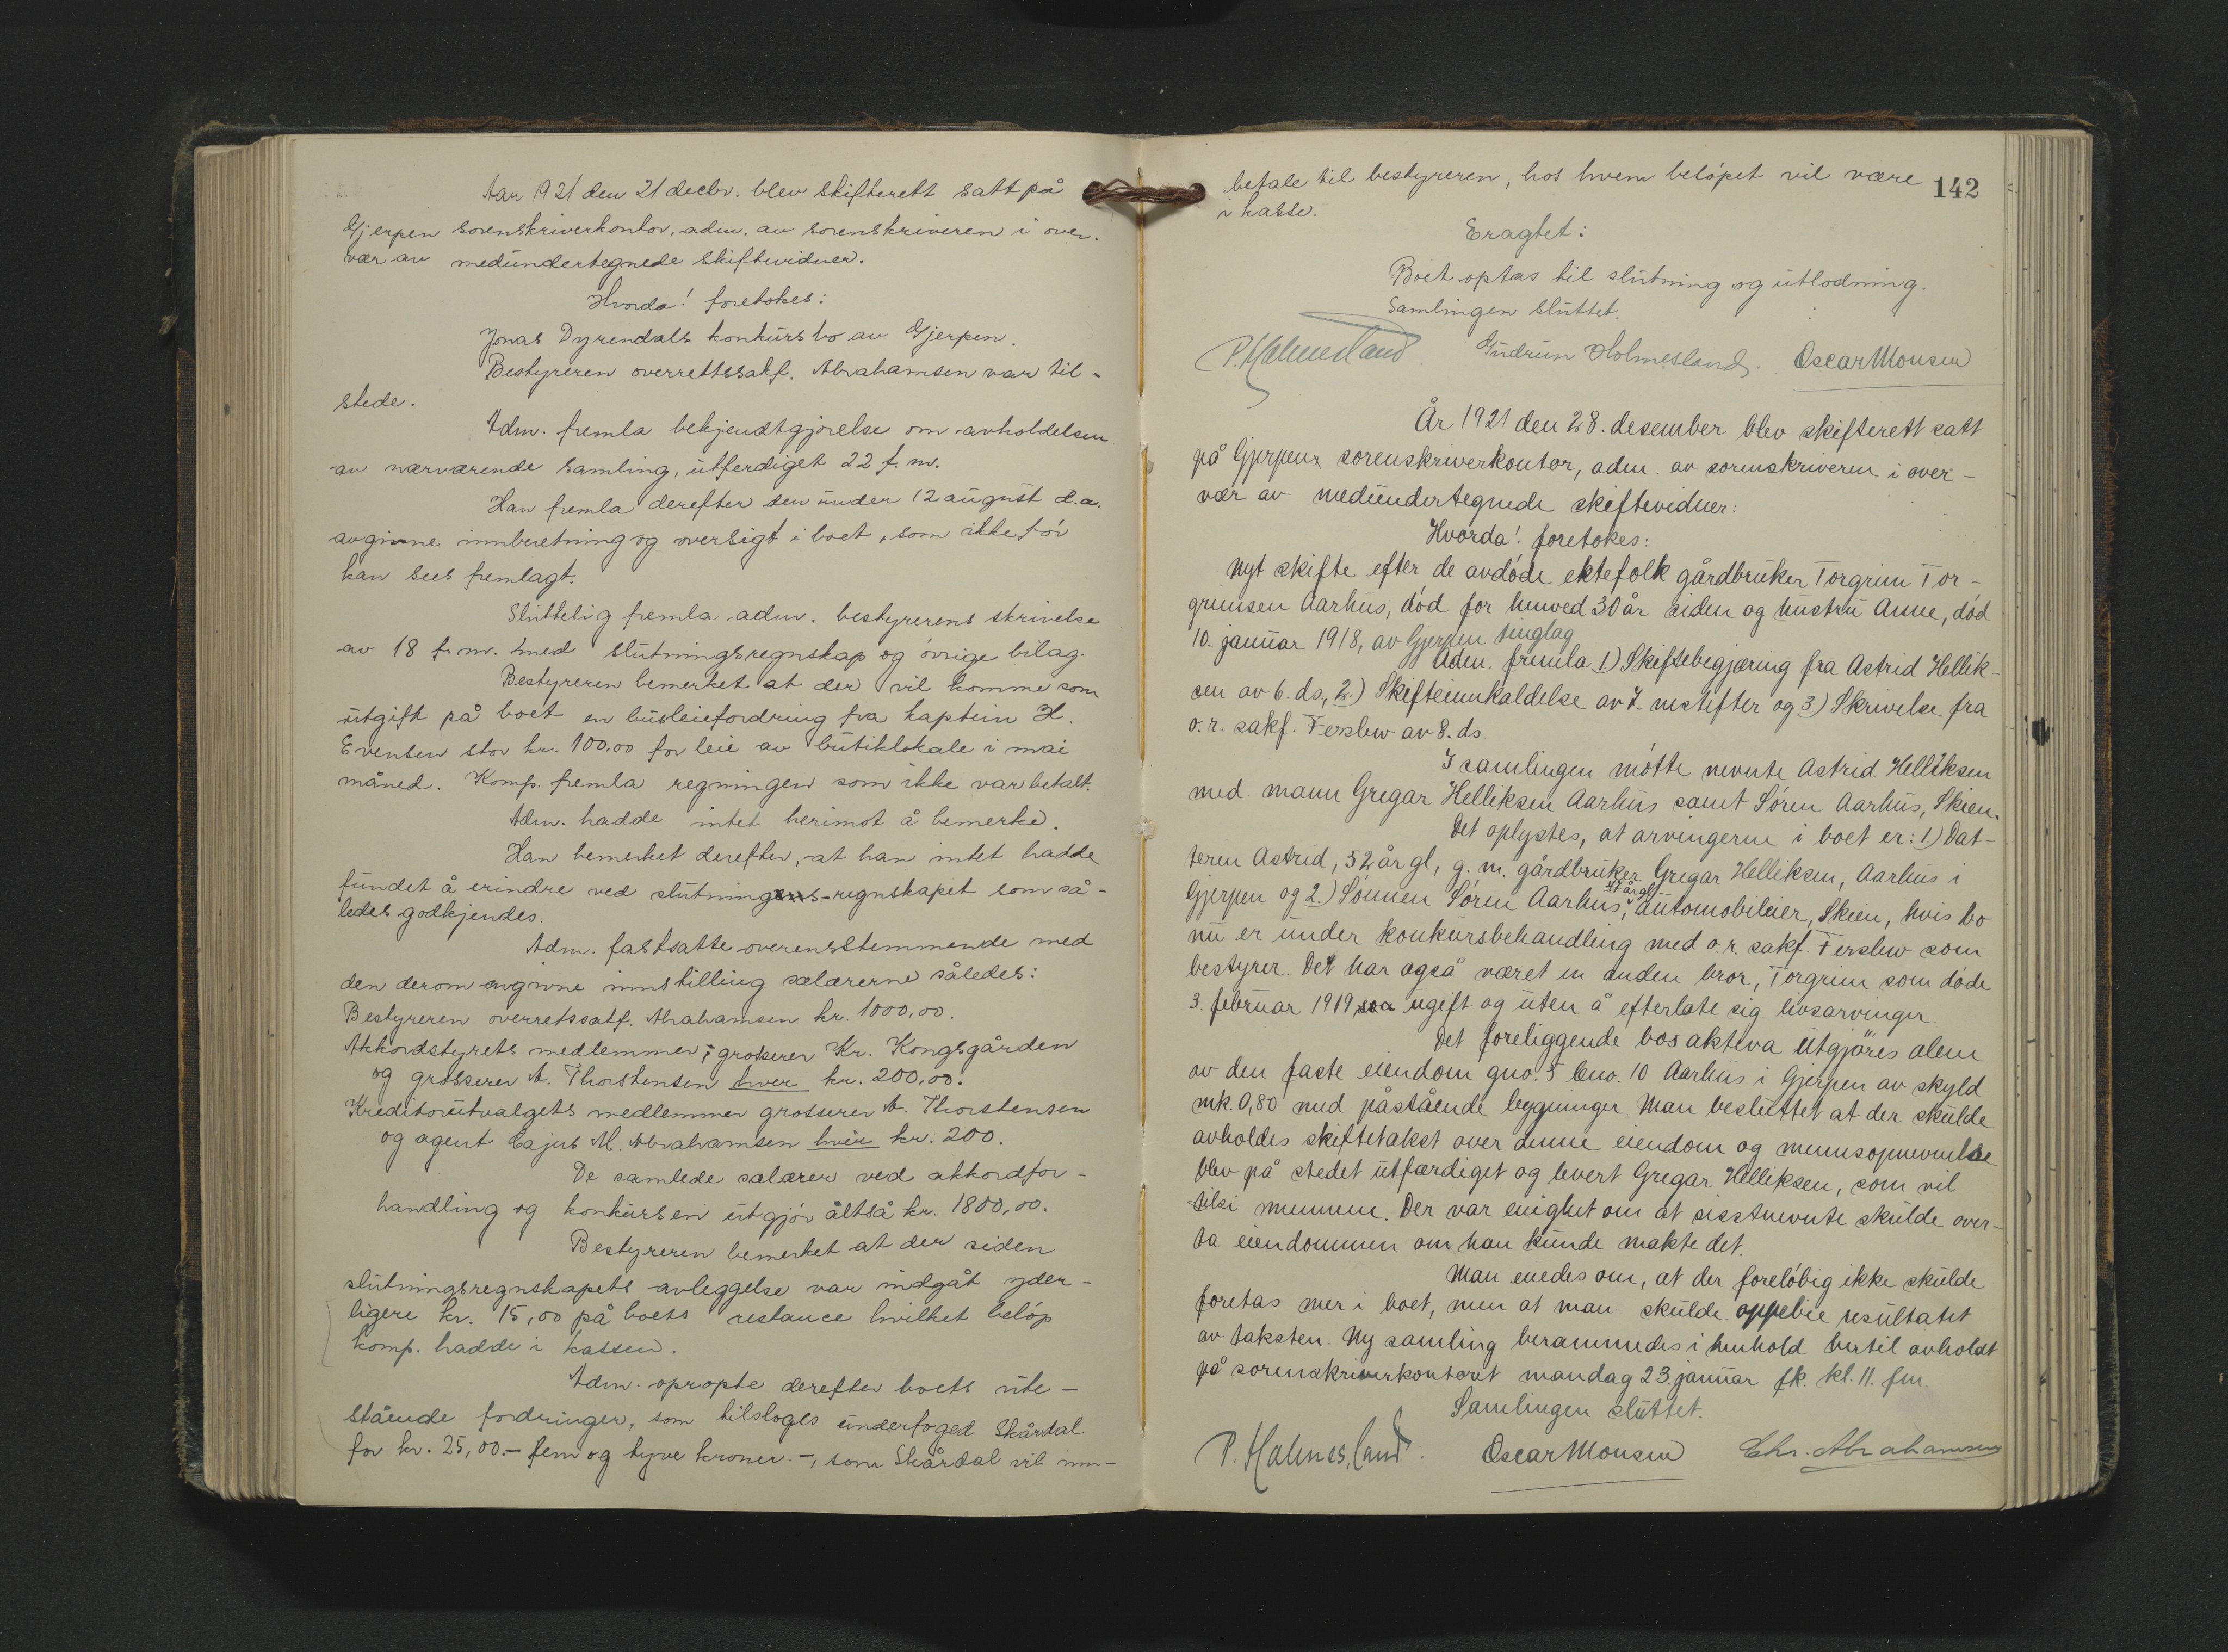 Aar 1921 den 21 decbr. blev skifterett satt på
Gjerpen sorenskriverkontor, adm. av sorenskriveren i over-
vær av medundertegnede skiftevidner.
Hvorda! foretokes:
Jonas Dyrendals konkursbo av Gjerpen.
Bestyreren overrettssakf. Abrahamsen var til-
stede.
Adm. fremla bekjendtgjørelse om avholdelsen
av nærværende samling, utferdiget 22 f. m.
Han fremla derefter den under 12 august d.a.
avgivne innberetning og oversigt i boet, som ikke før
kan sees fremlagt.
Sluttelig fremla adm. bestyrerens skrivelse
av 18 f. m. med slutningsregnskap og øvrige bilag.
Bestyreren bemerket at der vil komme som
utgift på boet en husleiefordring fra kaptein H.
Evensen stor kr. 100.00 for leie av butiklokale i mai
måned. Komp. fremla regningen som ikke var betalt.
Adm. hadde intet herimot å bemerke.
Han bemerket derefter, at han intet hadde
fundet å erindre ved slutnings-regnskapet som så-
ledes godkjendes.
Adm. fastsatte overensstemmende med
den derom avgivne innstilling salærerne således:
Bestyreren overretssakf. Abrahamsen kr. 1000,00.
Akkordstyrets medlemmer, grosserer Kr. Kongsgården
og grosserer A. Thorstensen hver kr. 200,00.
Kreditorutvalgets medlemmer grosserer A. Thorstensen
og agent Cajus M. Abrahamsen hver kr. 200.
De samlede salærer ved akkordfor-
handling og konkursen utgjør altså kr. 1800,00.
Bestyreren bemerket at der siden
slutningsregnskapets avleggelse var indgåt yder-
ligere kr. 15,00 på boets restance hvilket beløp
komp. hadde i kassen.
Adm. opropte derefter boets ute-
stående fordringer, som tilsloges underfoged Skårdal
for kr. 25,00.- fem og tyve kroner. -, som Skårdal vil inn-
142
betale til bestyreren, hos hvem beløpet vil være
i kasse.
Eragtet:
Boet optas til slutning og utlodning.
Samlingen sluttet.
P. Holmesland Gudrun Holmesland. Oscar Monsen
År 1921 den 28. desember blev skifterett satt
på Gjerpens sorenskriverkontor, adm. av sorenskriveren i over-
vær av medundertegnede skiftevidner:
Hvorda! foretokes:
Nyt skifte efter de avdøde ektefolk gårdbruker Torgrim Tor-
grimsen Aarhus, død for henved 30 år siden og hustru Anne, død
10. januar 1918, av Gjerpen tinglag
Adm. fremla 1) Skiftebegjæring fra Astrid Hellik-
sen av 6. ds, 2.) Skifteinnkaldelse av 7. nestefter og 3.) Skrivelse fra
o. r. sakf. Ferslew av 8. ds.
I samlingen møtte nevnte Astrid Helliksen
med mann Gregar Helliksen Aarhus samt Søren Aarhus, Skien.
Det oplystes, at arvingerne i boet er: 1) Dat-
teren Astrid, 52 år gl, g. m. gårdbruker Gregar Helliksen, Aarhus i
Gjerpen og 2.) Sønnen Søren Aarhus, 47 år gl, automobileier, Skien, hvis bo
nu er under konkursbehandling med o. r. sakf. Ferslew som
bestyrer. Det har også været en anden bror, Torgrim som døde
3. februar 1919 ugift og uten å efterlate sig livsarvinger.
Det foreliggende bos aktiva utgjøres alene
av den faste eiendom gno. 5 bno. 10 Aarhus i Gjerpen av skyld
mk. 0,80 med påstående bygninger. Man besluttet at der skulde
avholdes skiftetakst over denne eiendom og mennsopnevnelse
blev på stedet utfærdiget og levert Gregar Helliksen, som vil
tilsi mennene. Der var enighet om at sisstnevnte skulde over-
ta eiendommen om han kunde makte det.
Man enedes om, at der foreløbig ikke skulde
foretas mer i boet, men at man skulde oppebie resultatet
av taksten. Ny samling berammedes i henhold hertil avholdt
på sorenskriverkontoret mandag 23. januar fk. kl. 11. fm.
Samlingen sluttet.
P. Holmesland. Oscar Monsen Chr. Abrahamsen